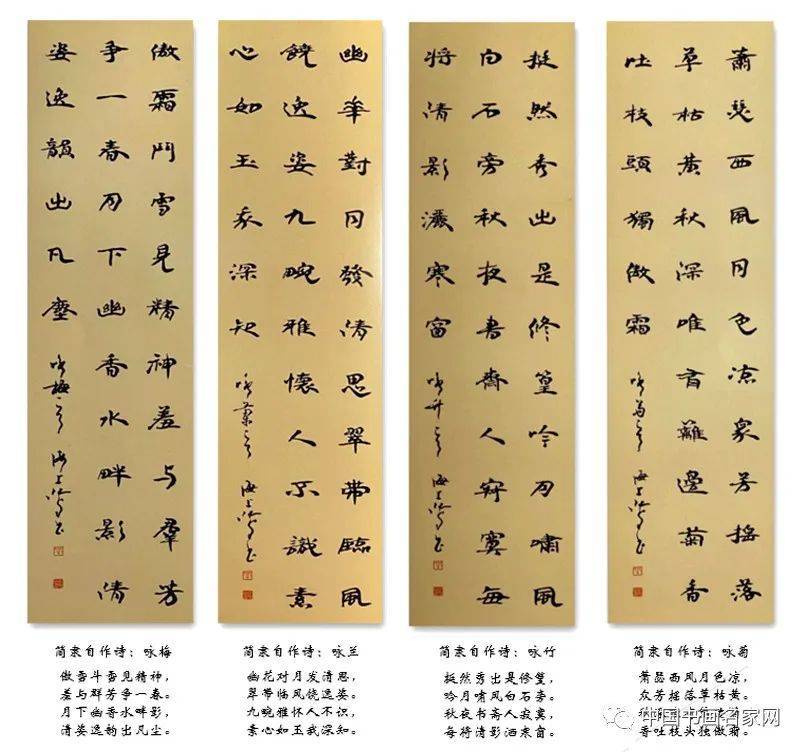 傲霜鬥雪見精神羞与羣芳
争一春月下幽香水畔影清
姿逸韻出凡塵
咏梅一首
幽華對月發清思翠带臨風
饒逸姿九畹雅懷人不識素
心如玉我深知
咏蘭一首
挺然秀出是修篁吟月嘯風
白石旁秋夜書齋人寂寞每
將清影灑寒窗
咏竹一首
蕭瑟西風月色凉衆芳摇落
草枯黄秋深唯有籬邊菊香
吐枝頭獨傲霜
咏菊一首
简隶自作诗：咏梅
傲霜斗雪见精神，
羞与群芳争一春。
月下幽香水畔影，
清姿逸韵出凡尘。
简隶自作诗：咏兰
幽花对月发清思，
翠带临风饶逸姿。
九畹雅怀人不识，
素心如玉我深知。
简隶自作诗：咏竹
挺然秀出是修篁，
吟月啸风白石旁。
秋夜书斋人寂寞，
每将清影洒寒窗。
简隶自作诗：咏菊
萧瑟西风月色凉，
众芳摇落草枯黄。
香吐枝头独傲霜。
中国书画名家网